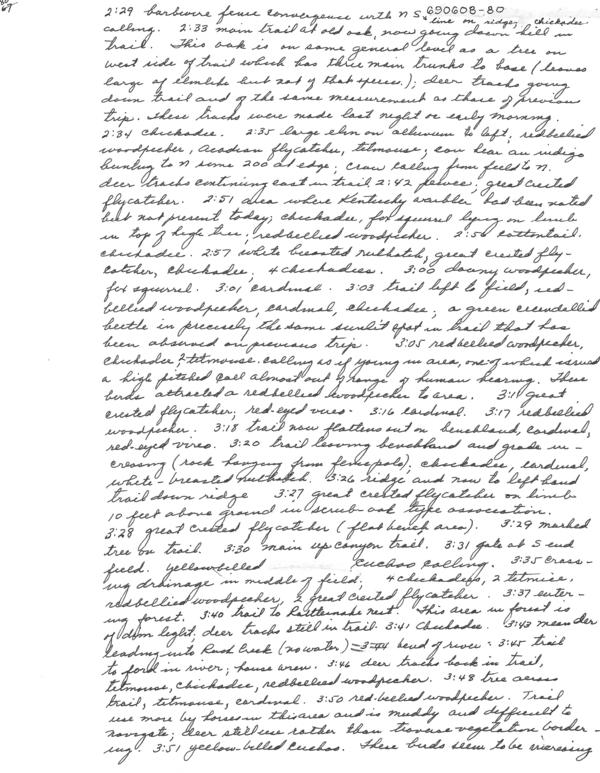 67
2:29 barbwire fence convergence with N S 690608-80
line on ridge; chickadee
calling. 2:33 main trail at old oak, now going down hill in
trail. This oak is on same general level as a tree on
west side of trail which has three main trunks to base (leaves
large & elmlike but not of that species.); deer tracks going
down trail and of the same measurement as those of previous
trip. These tracks were made last night or early morning.
2:34 chickadee. 2:35 large elm on alluvium to left, redbellied
woodpecker, Acadian flycatcher, titmouse; can hear an indigo
bunting to N some 200 at edge; crow calling from field to N.
deer tracks continuing east in trail 2:42 pewee; great crested
flycatcher. 2:51 area where Kentucky warbler had been noted
but not present today; chickadee, fox squirrel lying on limb
in top of high tree; redbellied woodpecker. 2:56 cottontail.
chickadee. 2:57 white breasted nuthatch, great crested fly-
catcher, chickadee, 4 chickadees. 3:00 downy woodpecker,
fox squirrel. 3:01 cardinal. 3:03 trail left to field, red-
bellied woodpecker, cardinal, chickadee; a green cicindellid
beetle in precisely the same sunlit spot in trail that has
been observed on previous trip. 3:05 redbellied woodpecker,
chickadee & titmouse calling as if young in area, one of which issued
a high pitched call almost out of range of human hearing. These
birds attracted a redbellied woodpecker to area. 3:11 great
crested flycatcher; red-eyed vireo. 3:16 cardinal. 3:17 redbellied
woodpecker. 3:18 trail now flattens out on benchland, cardinal,
red-eyed vireo. 3:20 trail leaving benchland and grade in-
creasing (rock hanging from fence pole); chickadee, cardinal,
white-breasted nuthatch. 3:26 ridge and now to left hand
trail down ridge 3:27 great crested flycatcher on limb
10 feet above ground in scrub-oak type association.
3:28 great crested flycatcher (flat bench area). 3:29 marked
tree on trail. 3:30 main up canyon trail. 3:31 gate at S end
field. yellowbilled cuckoo calling. 3:35 cross-
ing drainage in middle of field; 4 chickadees, 2 titmice,
redbellied woodpecker, 2 great crested flycatcher. 3:37 enter-
ing forest. 3:40 trail to Rattlesnake nest. This area in forest is
of dim light, deer tracks still in trail. 3:41 Chickadee. 3:43 meander
leading into Rush Creek (no water) = 3:44 bend of river = 3:45 trail
to ford in river; house wren. 3:46 deer tracks back in trail,
titmouse, chickadee, redbellied woodpecker. 3:48 tree across
trail, titmouse, cardinal. 3:50 red-bellied woodpecker. Trail
use more by horses in this area and is muddy and difficult to
navigate; deer still use rather than traverse vegetation border-
ing. 3:51 yellow-billed cuckoo. These birds seem to be increasing